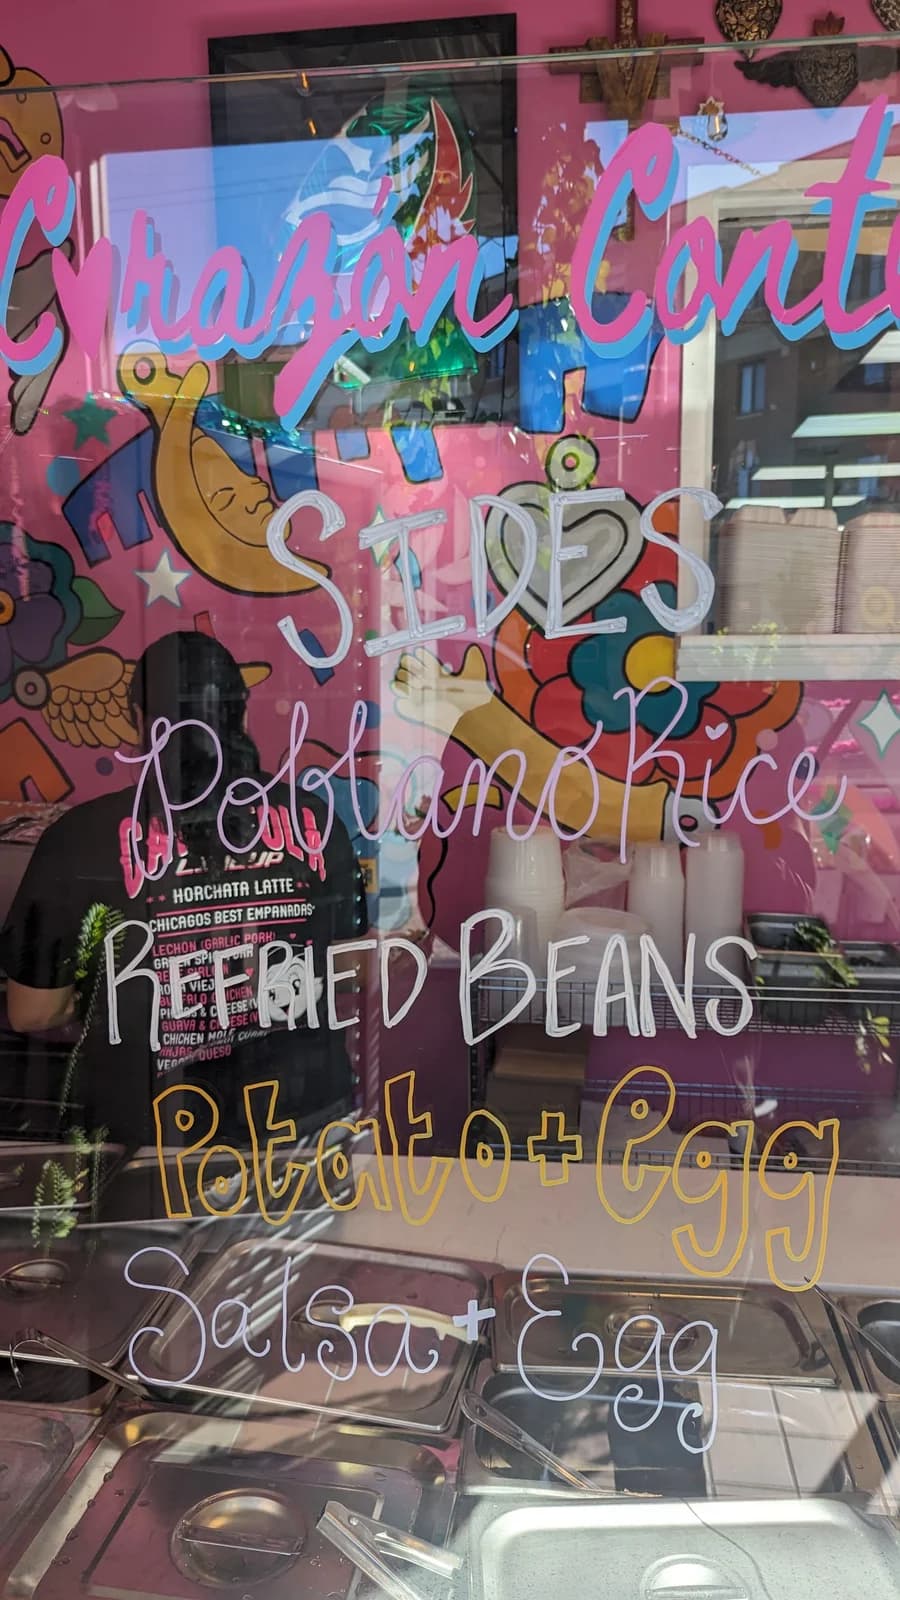 Corazón Cont
SIDES
Poblano Rice
REFRIED BEANS
Potato + egg
Salsa + Egg
HORCHATA LATTE
CHICAGOS BEST EMPANADAS
LECHON (GARLIC PORK)
GUAVA & CHEESE
CHICKEN MOLE
RAJAS QUESO